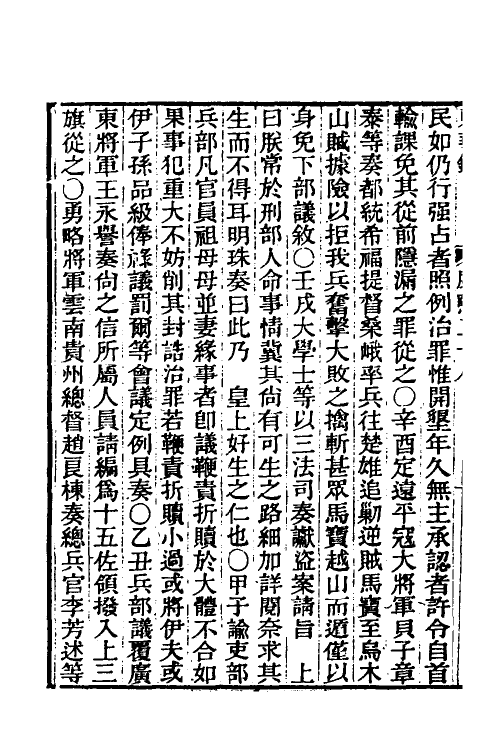 民如仍行强占者照例治罪惟開墾年久無主承認者許令自首
輸課免其從前隱漏之罪從之○辛酉定遠平寇大將軍貝子章
泰等奏都統希福提督桑峨率兵往楚雄追勦逆賊馬寶至烏木
山賊據險以拒我兵奮擊大敗之擒斬甚眾馬寶越山而遁僅以
身免下部議敘○壬戌大學士等以三法司奏讞盜案請旨　上
曰朕常於刑部人命事情冀其尙有可生之路細加詳閱奈求其
生而不得耳明珠奏曰此乃　皇上好生之仁也○甲子諭吏部
兵部凡官員祖母母並妻緣事者卽議鞭責折贖於大體不合如
果事犯重大不妨削其封誥治罪若鞭責折贖小過或將伊夫或
伊子孫品級俸祿議罰爾等會議定例具奏○乙丑兵部議覆廣
東將軍王永譽奏尙之信所屬人員請編爲十五佐領撥入上三
旗從之○勇略將軍雲南貴州總督趙良棟奏總兵官李芳述等